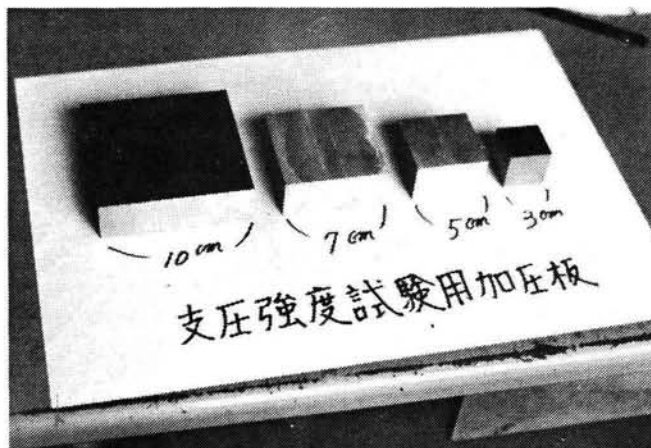 10cm 7cm 5cm 3cm
支圧強度試験用加圧板